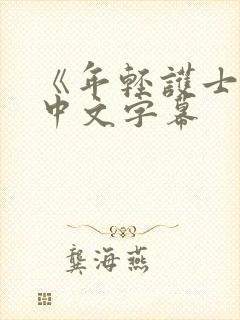 《年轻護士
中文字幕
龔海燕